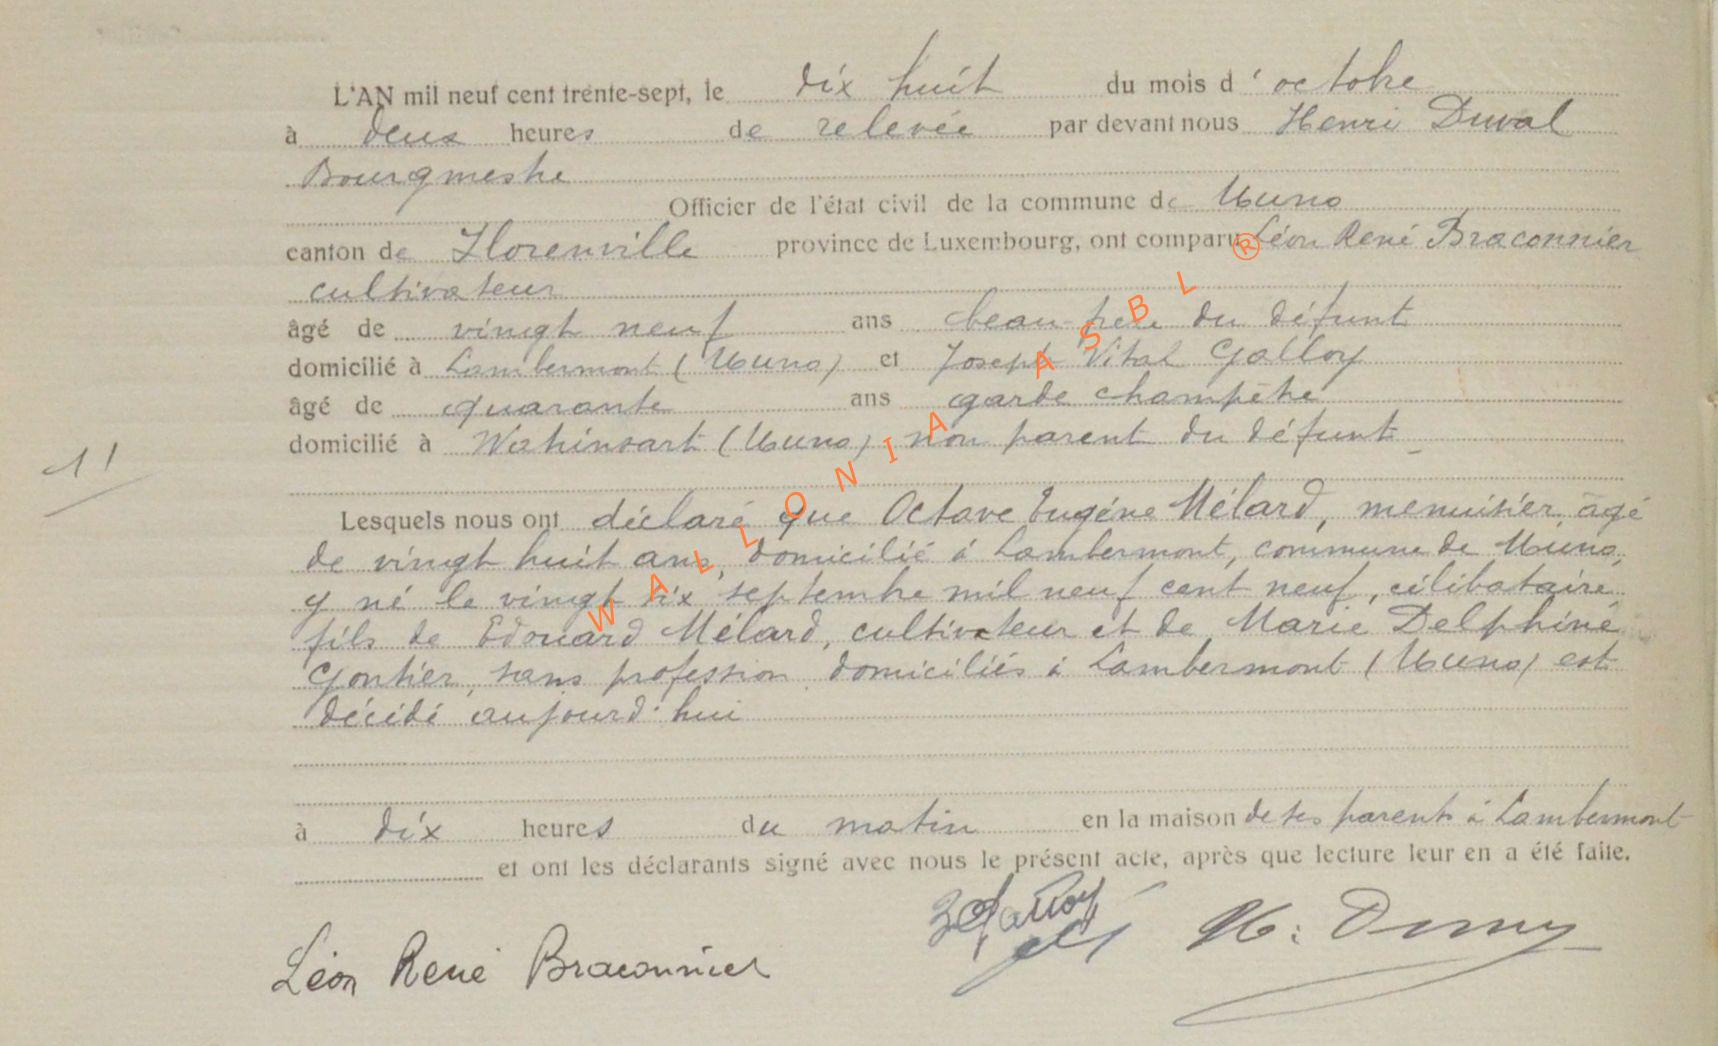 L'AN mil neuf cent trente-sept, le dix huit du mois d'octobre
à deux heures de relevée par devant nous Henri Duval
Bourgmestre
Officier de l'état civil de la commune de Muno
canton de Florenville province de Luxembourg, ont comparu Léon René Braconnier
cultivateur
âgé de vingt neuf ans beau-frère du défunt
domicilié à Lambermont (Muno) et Joseph Vital Galloy
âgé de quarante ans garde champêtre
domicilié à Watrinsart (Muno) non parent du défunt
11
Lesquels nous ont déclaré que Octave Eugène Mélard, menuisier, âgé
de vingt huit ans, domicilié à Lambermont, commune de Muno,
y né le vingt six septembre mil neuf cent neuf, célibataire
fils de Edouard Mélard, cultivateur et de Marie Delphine
Gontier, sans profession domiciliés à Lambermont (Muno) est
décédé aujourd'hui
à dix heures du matin en la maison de ses parents à Lambermont
et ont les déclarants signé avec nous le présent acte, après que lecture leur en a été faite.
Léon René Braconnier
WALLONIA ASBL ®